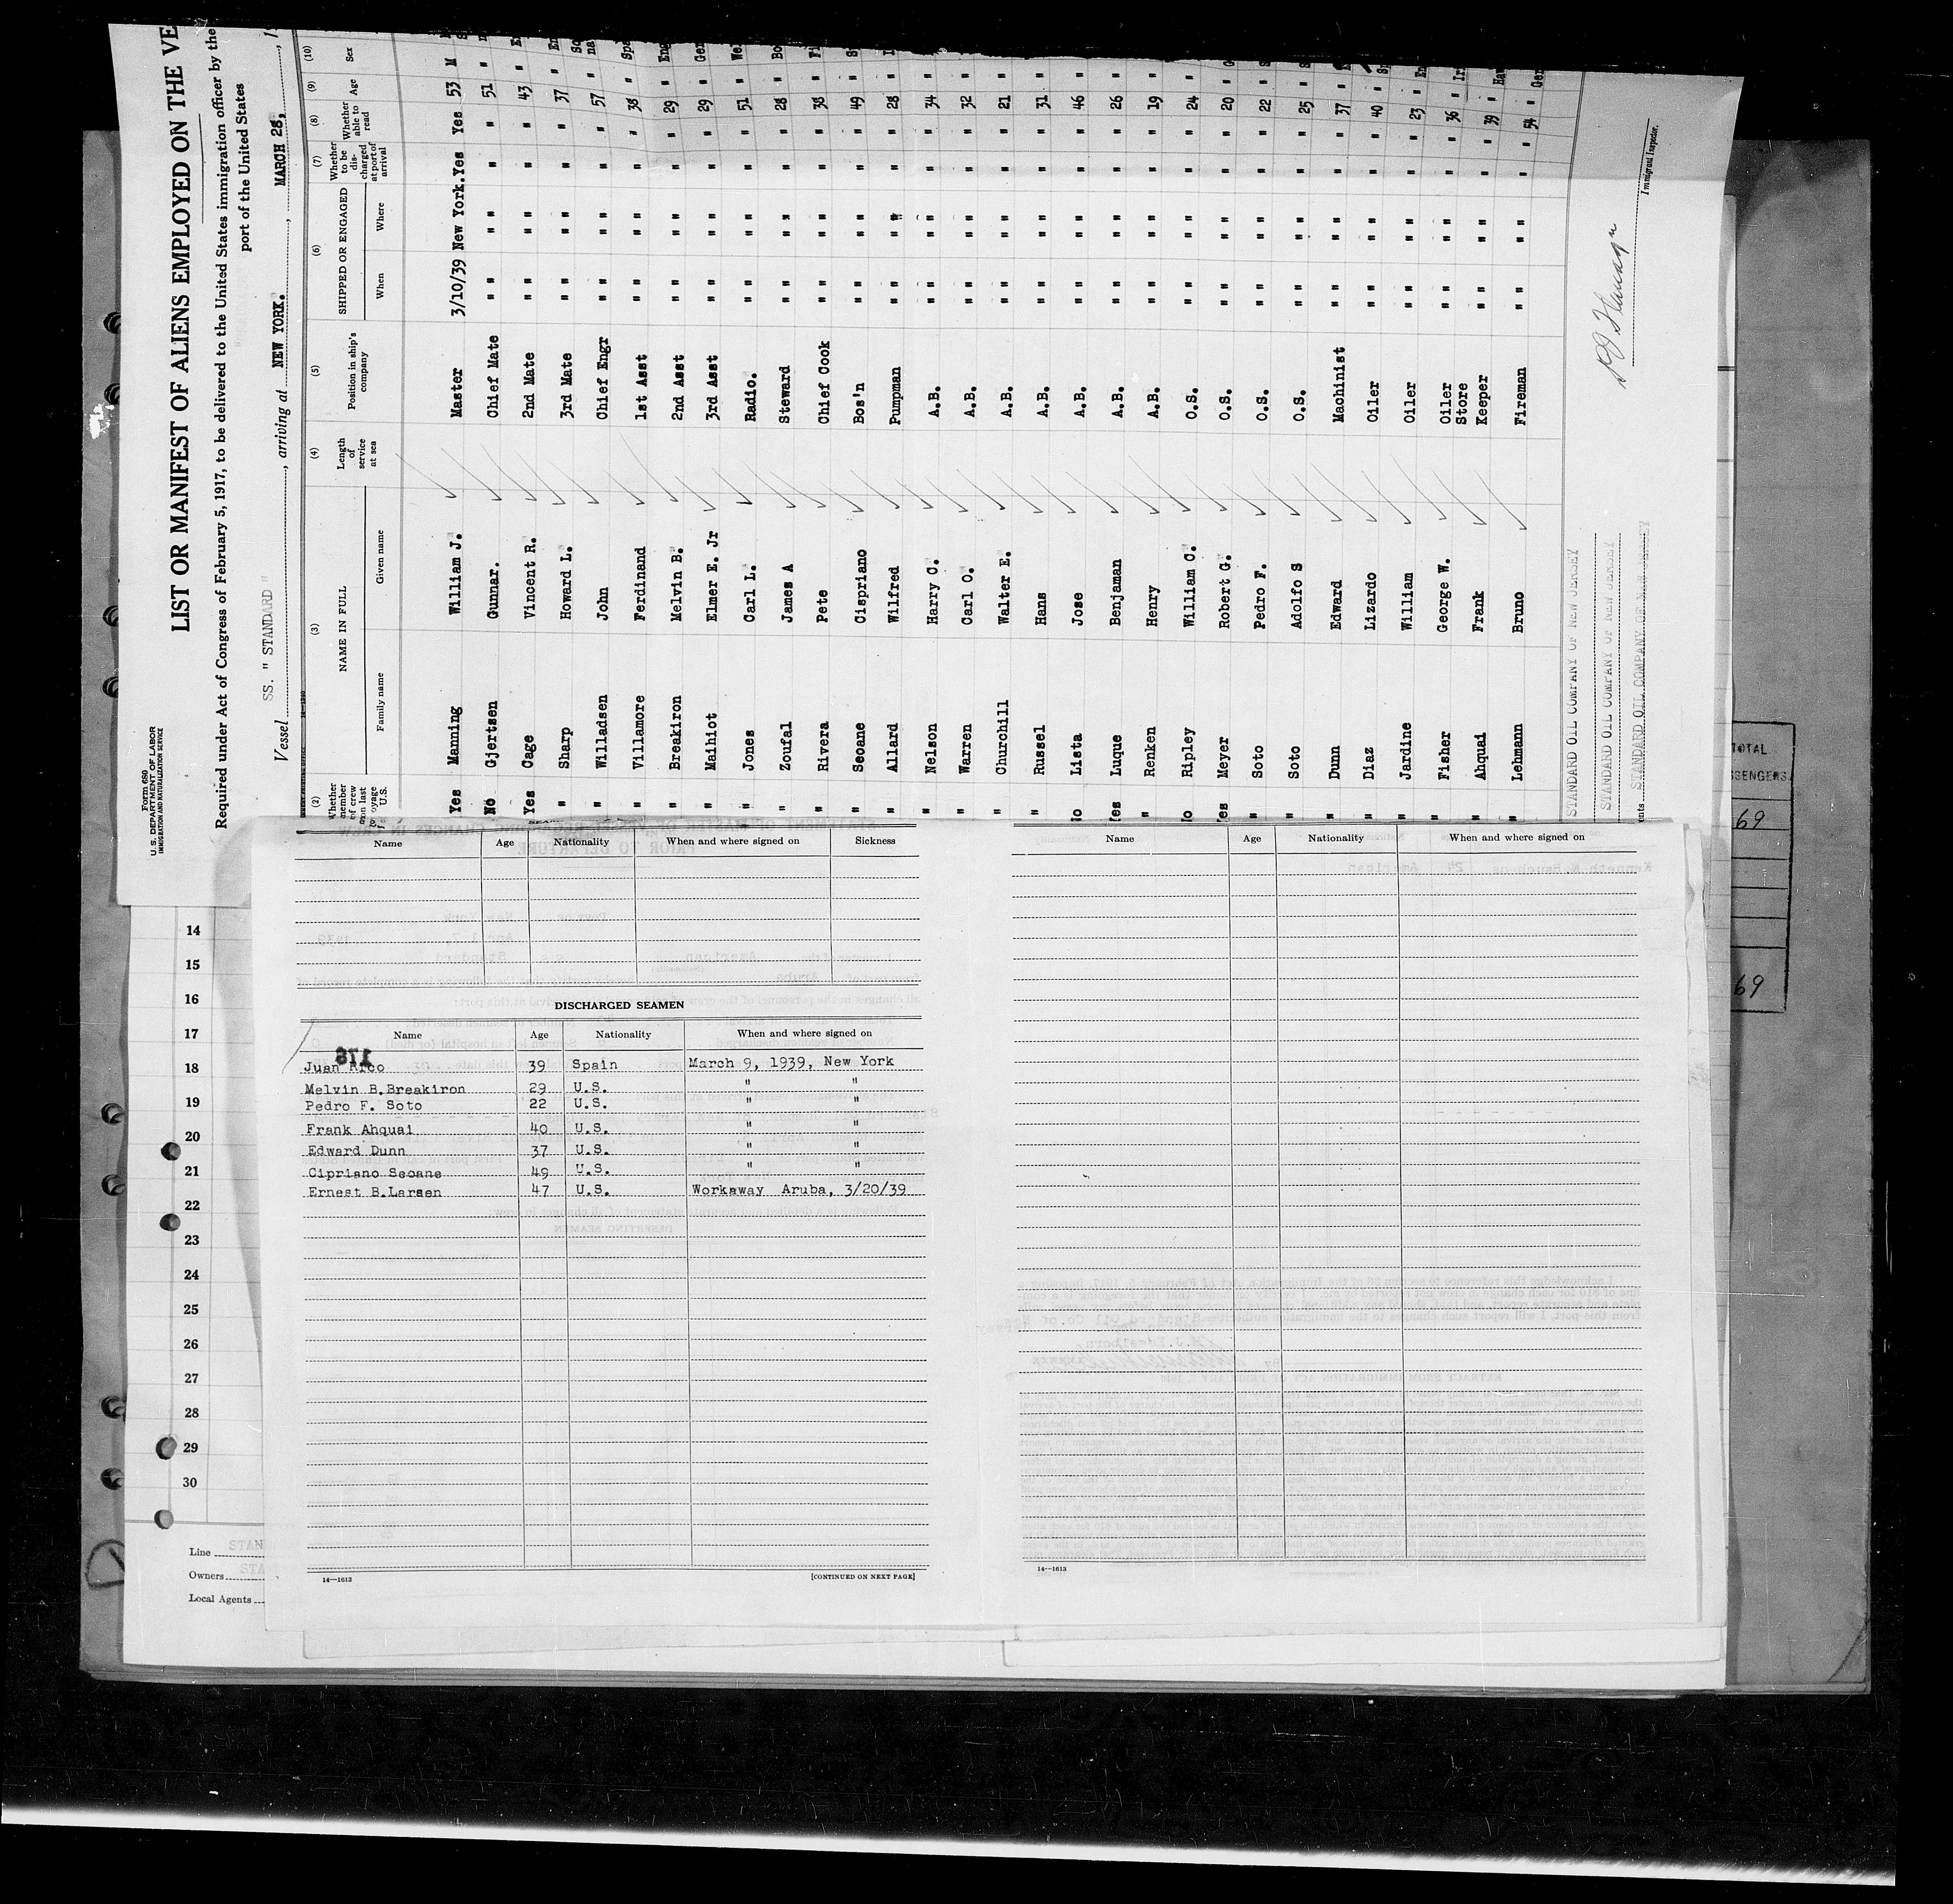 Form 680
U. S. DEPARTMENT OF LABOR
IMMIGRATION AND NATURALIZATION SERVICE
LIST OR MANIFEST OF ALIENS EMPLOYED ON THE VE
Required under Act of Congress of February 5, 1917, to be delivered to the United States immigration officer by the
port of the United States
Vessel SS. " STANDARD ", arriving at NEW YORK., MARCH 28,
(2) (3) (4) (5) (6) (7) (8) (9) (10)
NAME IN FULL
Family name Given name
Length of service at sea
Position in ship's company
SHIPPED OR ENGAGED
When Where
Whether to be discharged at port of arrival
Whether able to read
Age
Sex
Yes Manning William J. Master 3/10/39 New York. Yes Yes 53 M
No Gjertsen Gunnar. Chief Mate " " " " " " 51 "
Yes Cage Vincent R. 2nd Mate " " " " " " 43 "
" Sharp Howard L. 3rd Mate " " " " " " 37 "
" Willadsen John Chief Engr " " " " " " 57 "
" Villamore Ferdinand 1st Asst " " " " " " 38 " Spa
" Breakiron Melvin B. 2nd Asst " " " " " " 29 " Eng
" Maihiot Elmer E. Jr 3rd Asst " " " " " " 29 " Ger
" Jones Carl L. Radio. " " " " " " 51 " We
" Zoufal James A Steward " " " " " " 28 " Bo
" Rivera Pete Chief Cook " " " " " " 38 "
" Seoane Cispriano Bos'n " " " " " " 49 "
" Allard Wilfred Pumpman " " " " " " 28 "
" Nelson Harry C. A.B. " " " " " " 34 "
" Warren Carl O. A.B. " " " " " " 32 "
" Churchill Walter E. A.B. " " " " " " 21 "
" Russel Hans A.B. " " " " " " 31 "
No Lista Jose A.B. " " " " " " 46 "
Yes Luque Benjaman A.B. " " " " " " 26 "
" Renken Henry A.B. " " " " " " 19 "
No Ripley William C. O.S. " " " " " " 24 "
Yes Meyer Robert G. O.S. " " " " " " 20 "
" Soto Pedro F. O.S. " " " " " " 22 "
" Soto Adolfo S O.S. " " " " " " 25 "
" Dunn Edward Machinist " " " " " " 37 "
" Diaz Lizardo Oiler " " " " " " 40 "
" Jardine William Oiler " " " " " " 23 "
" Fisher George W. Oiler " " " " " " 36 "
" Ahquai Frank Store Keeper " " " " " " 39 "
" Lehmann Bruno Fireman " " " " " " 54 " Ger
STANDARD OIL COMPANY OF NEW JERSEY
STANDARD OIL COMPANY OF NEW JERSEY
STANDARD OIL COMPANY OF NEW JERSEY
Immigrant Inspector.
TOTAL
69
69
Name Age Nationality When and where signed on Sickness
DISCHARGED SEAMEN
Name Age Nationality When and where signed on
Juan Arco 39 Spain March 9, 1939, New York
Melvin B.Breakiron 29 U.S. " "
Pedro F. Soto 22 U.S. " "
Frank Ahquai 40 U.S. " "
Edward Dunn 37 U.S. " "
Cipriano Seoane 49 U.S. " "
Ernest B.Larsen 47 U.S. Workaway Aruba, 3/20/39
14—1613 [CONTINUED ON NEXT PAGE]
Name Age Nationality When and where signed on
14—1613
14
15
16
17
18
19
20
21
22
23
24
25
26
27
28
29
30
Line STAN
Owners STA
Local Agents